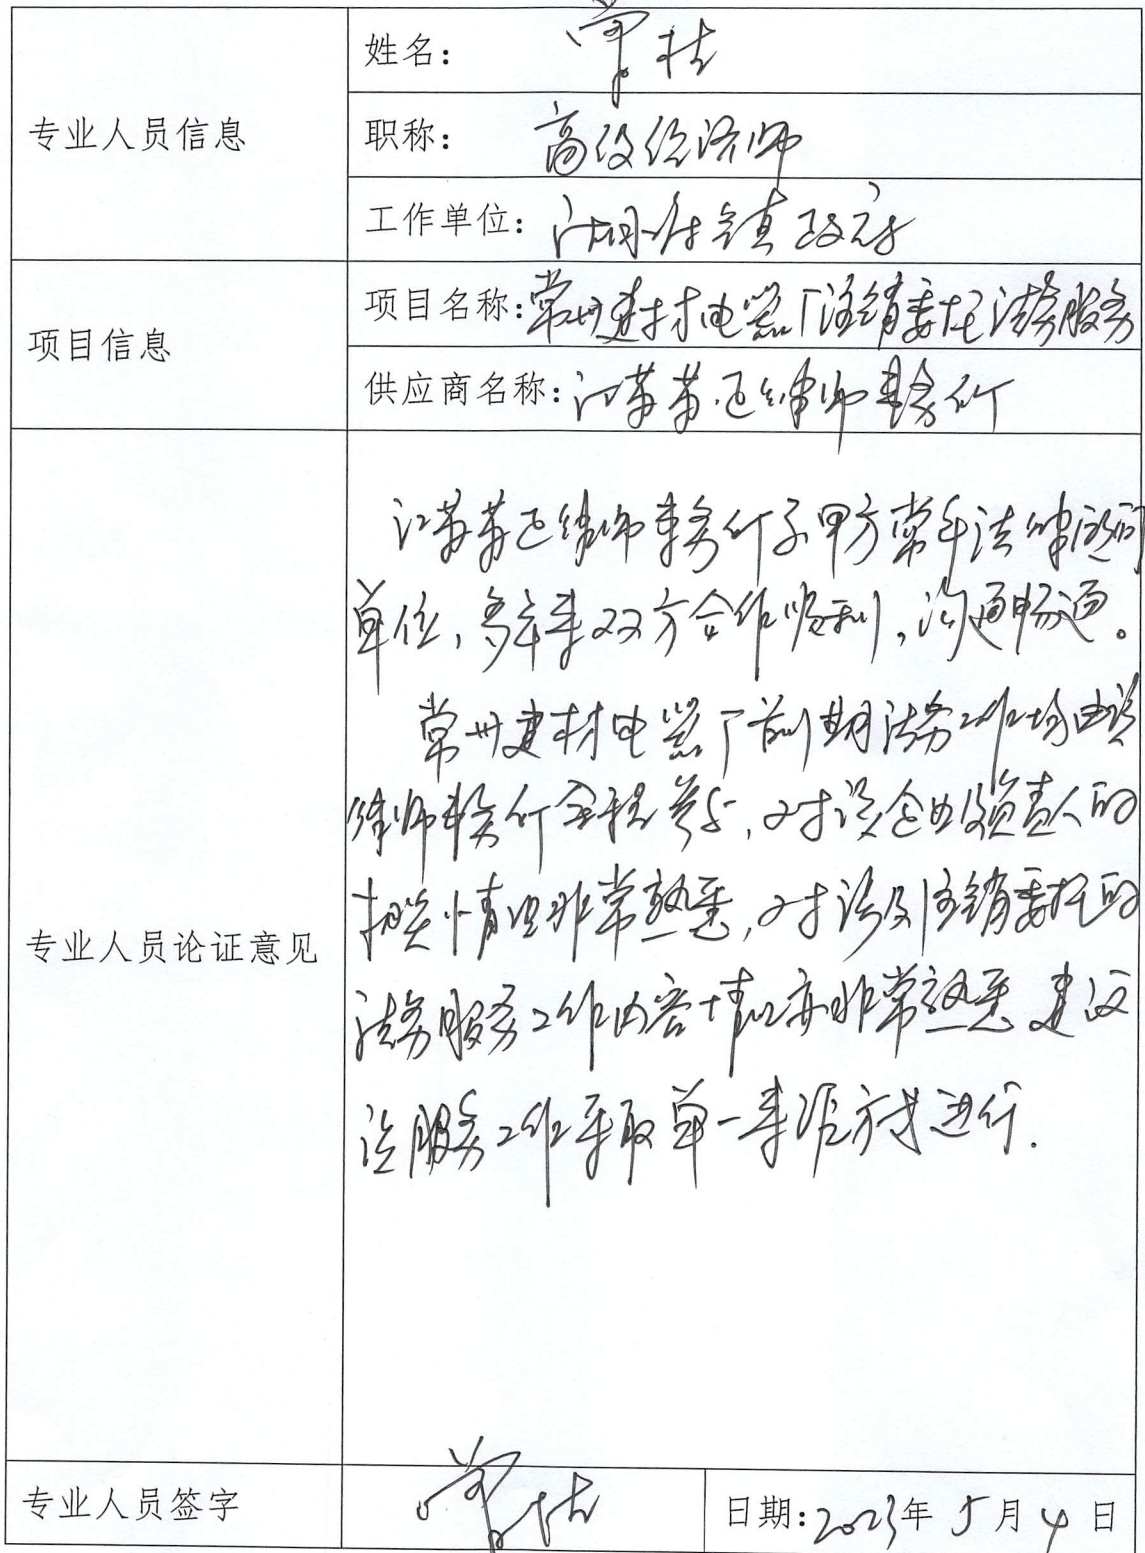 专业人员信息
姓名:
职称: 高级经济师
工作单位: 镇政府
项目信息
项目名称:常州建材电器厂注销委托法务服务
供应商名称:江苏苏正律师事务所
专业人员论证意见
江苏苏正律师事务所系甲方常年法律顾问
单位,多年来双方合作顺利,沟通畅通。
常州建材电器厂前期法务工作均由该
律师事务所全程参与,对该企业及负责人的
相关情况非常熟悉,对涉及注销委托的
法务服务工作内容情况亦非常熟悉 建议
该服务工作采取单一来源方式进行.
专业人员签字
日期:2023年5月4日